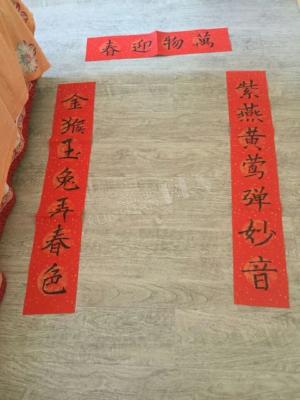 萬物迎春
紫燕黄莺弹妙音
金猴玉兔弄春色